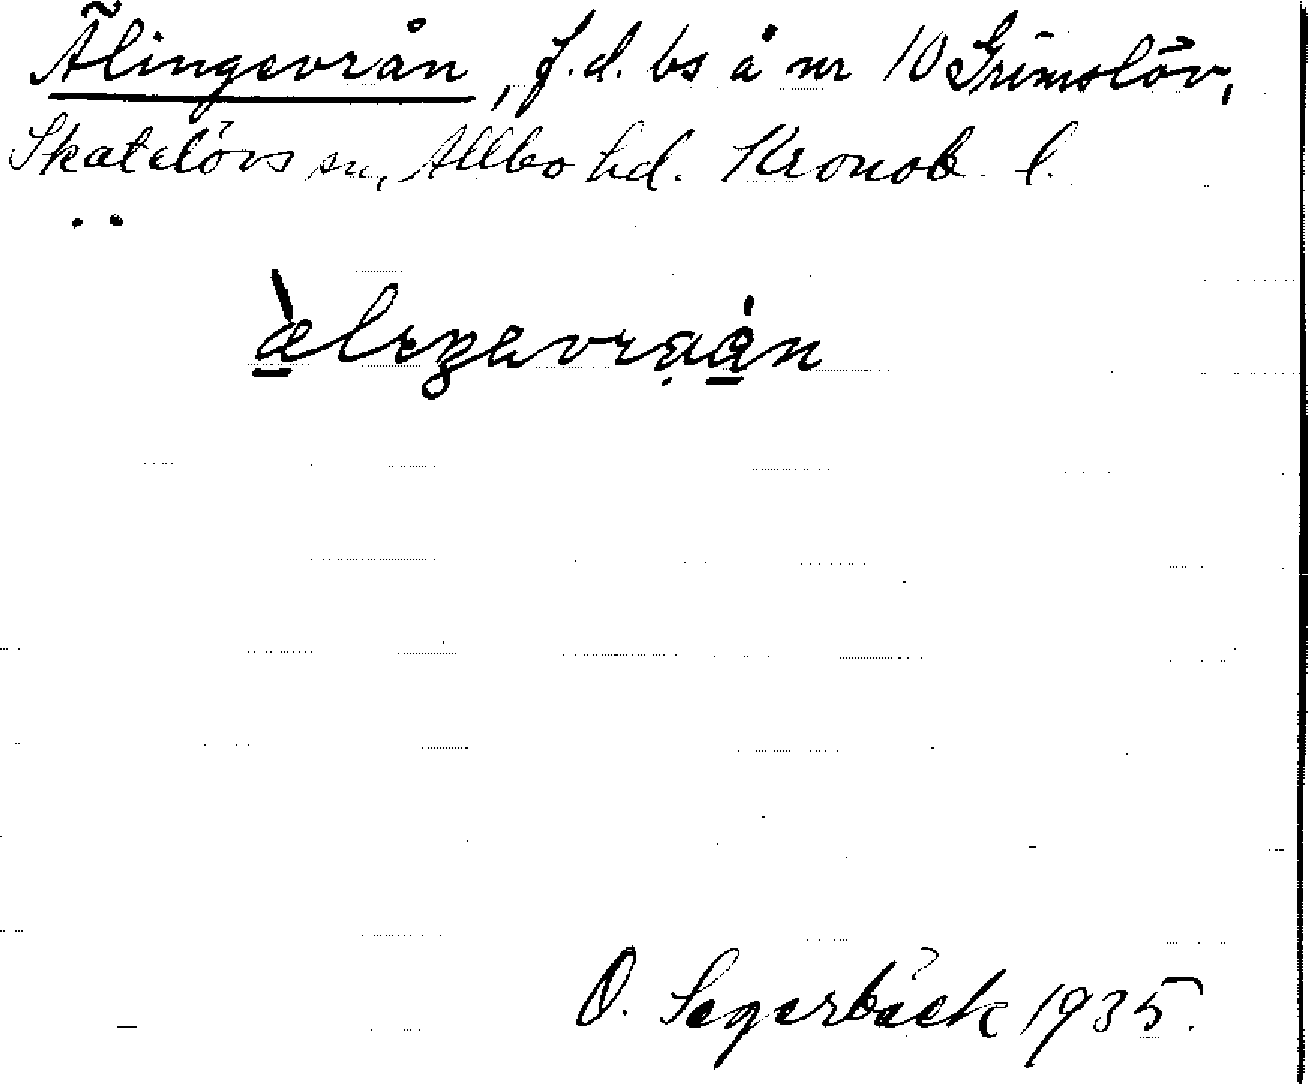 Älingevrån, f.d. bs å nr 10 Grimslöv,
Skatelövs sn, Allbo hd. Kronob. l.
O. Segerbäck 1935.